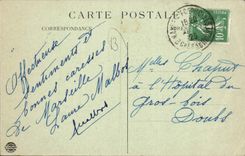 CARTE POSTALE
CORRESPONDANCE
Affectueux
sentiments et
bonnes caresses
de Marseille
Laure Malbos
Malbos
Melles Chaput
à l'Hôpital du
Gros-bois
Doubs